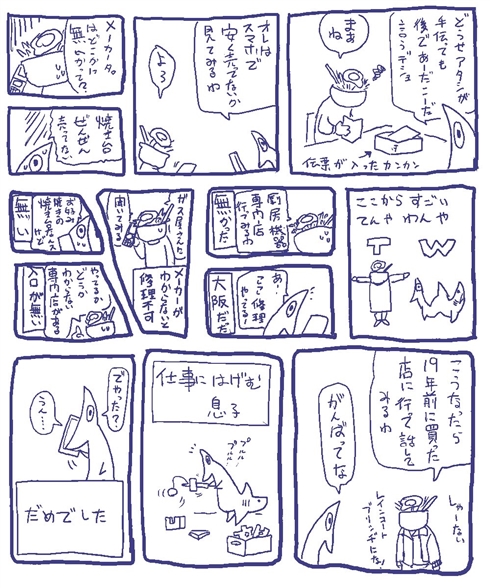 どうせアタシが
手伝ても
後であーだこーだ
言うデショ
まぁ
ね
伝票が入ったカンカン
オレは
スマホで
安く売てないか
見てみるわ
よろ
メーカータグ
はどこかに
無いかって?
焼き台
ぜんぜん
売ってない
ここから すごい
てんや わんや
T W
厨房機器
専門店
行てみるわ
無かった
あ!
ここ修理
やてる!
大阪だた
ガス屋さんに
聞いてみる
メーカーが
わからないと
修理不可
お好み
焼きの
焼き台ならス
けど
無い
やてるか
どうか
わからない
専門店がある
入口が無い
こうなったら
19年前に買った
店に行て話して
みるわ
しゃーない
レインコート
がんばってな
仕事にはげむ
息子
プルル
プルル
でやった?
うえ…
だめでした